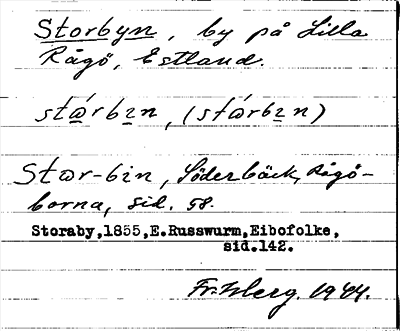 Storbyn, by på Lilla
Rågö, Estland.
stá̱rbi̱n, (stárbi̱n)
Stɷr-bin, Söderbäck, Rågö-
borna, sid. 58.
Storaby,1855,E.Russwurm,Eibofolke,
sid.142.
1944.